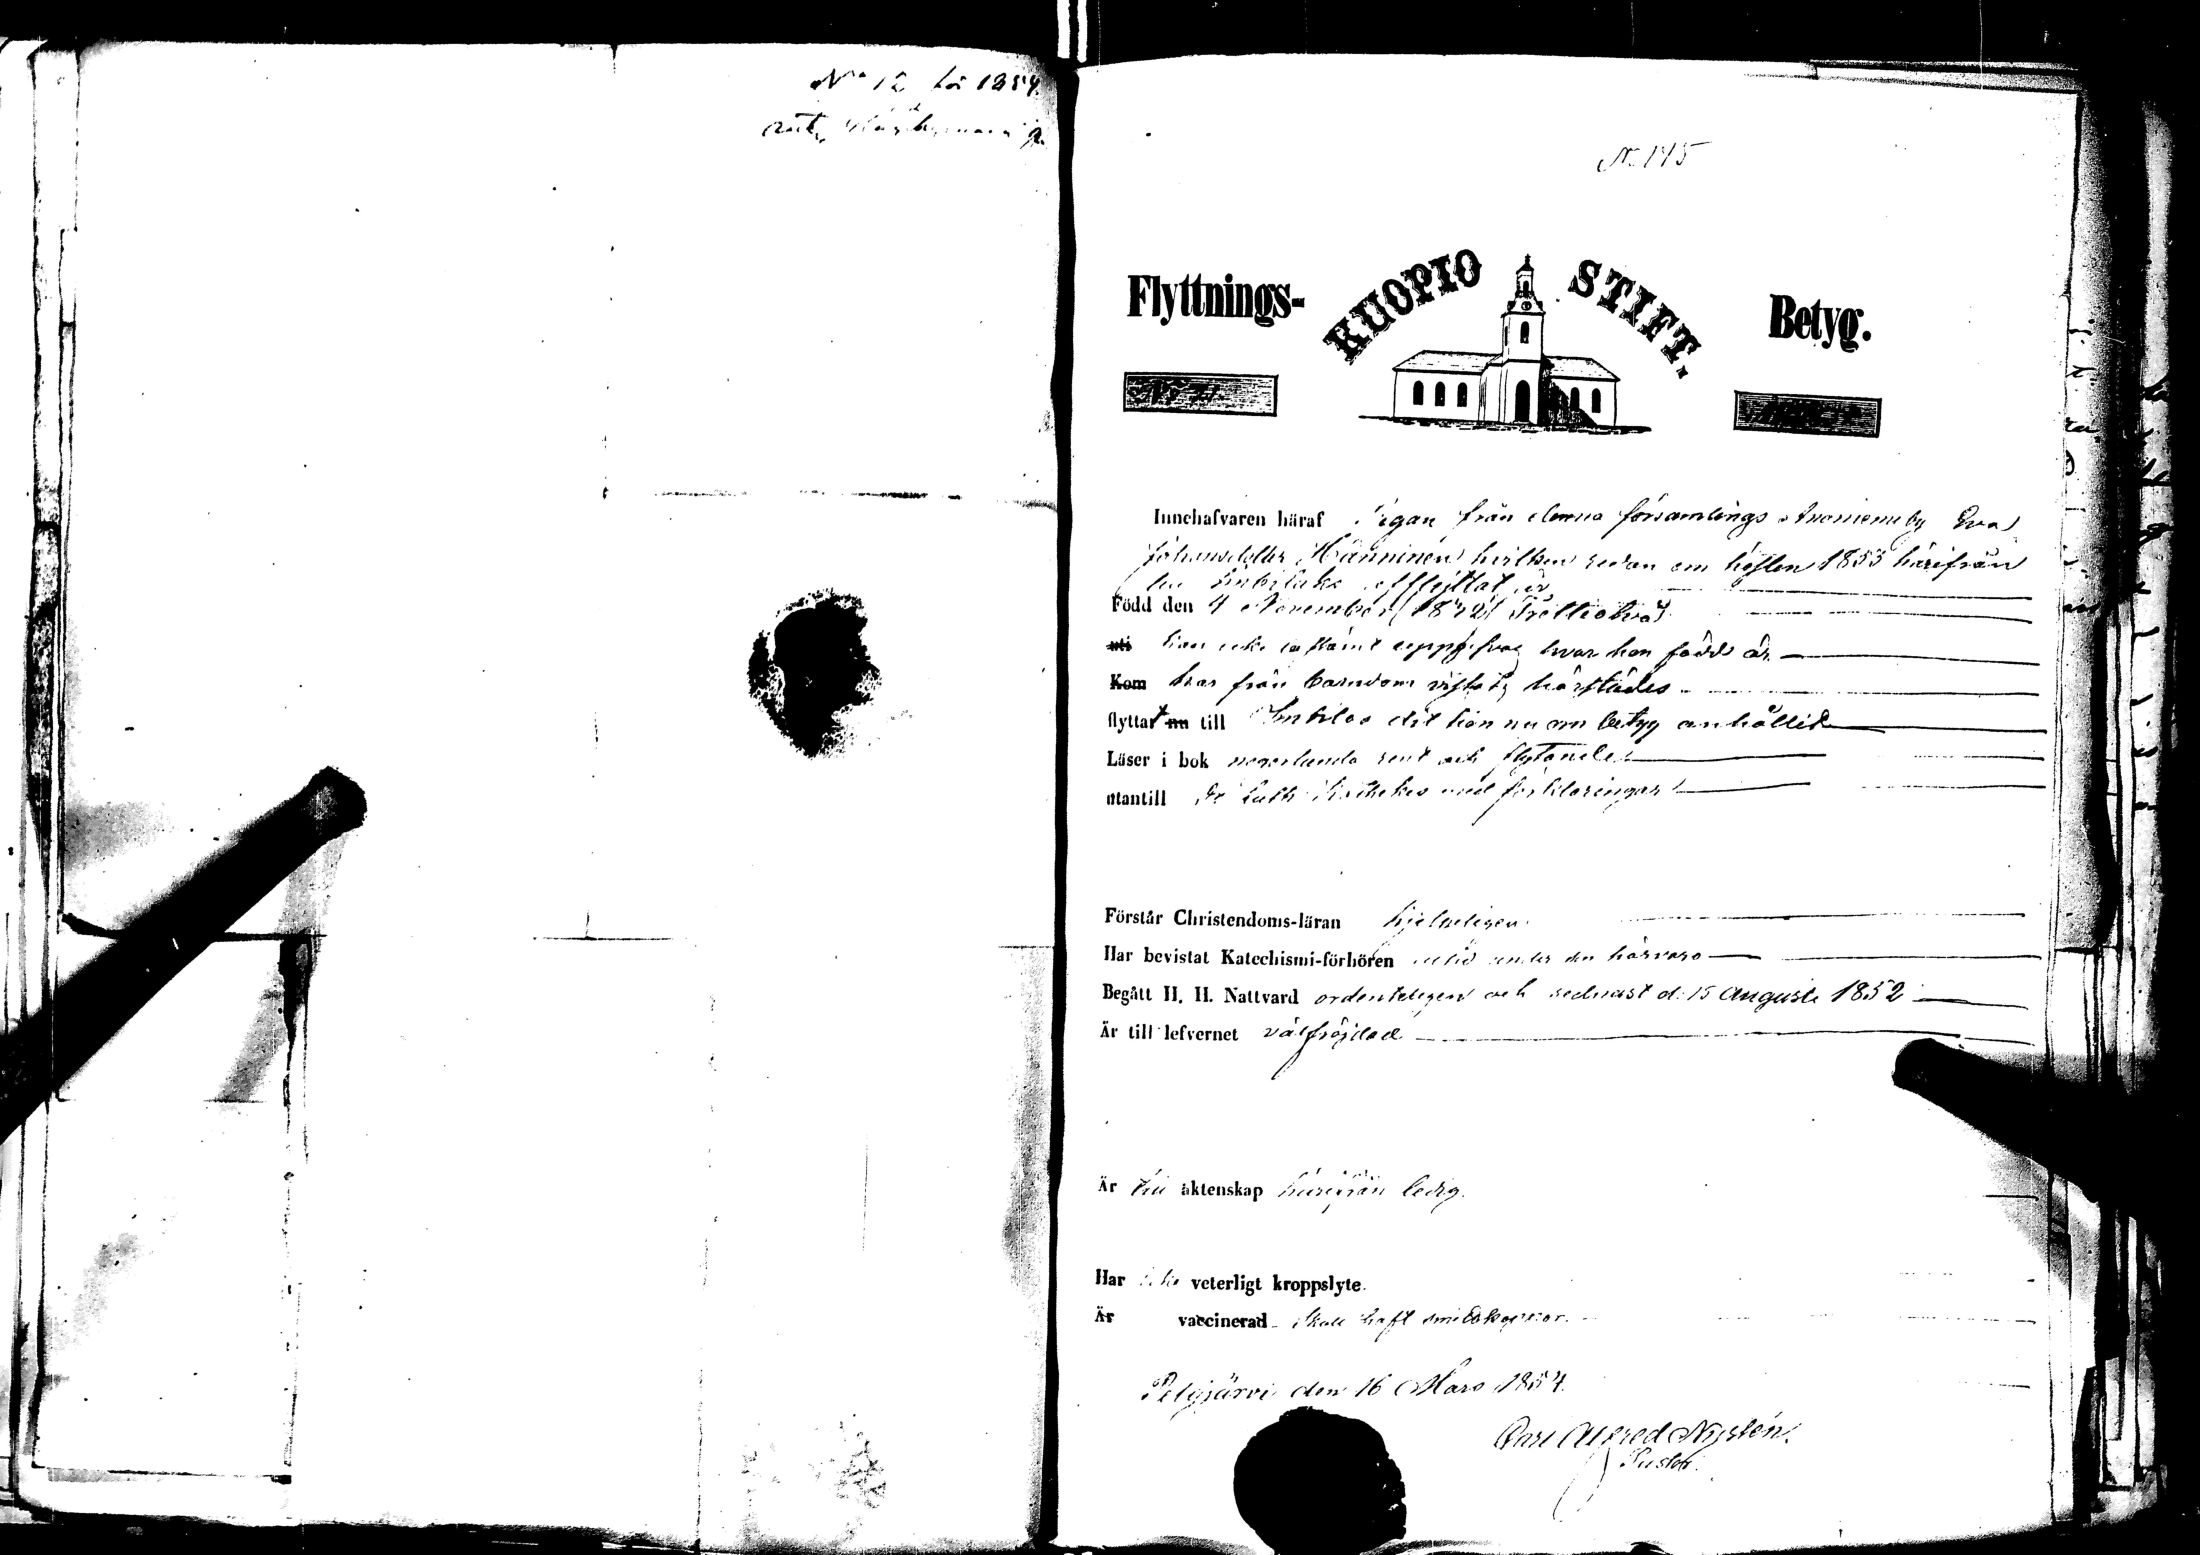 No 12 för 1854.
No 145
Flyttnings-
KUOPIO STIFT.
Betyg.
Innehafvaren häraf Pigan från denna församlings by Eva
Johansdotter Hänninen hvilken redan om hösten 1853 härifrån
till Imbilaks afflyttat är
Född den 4 November (1822) Trettiotvå
uti kan icke bestämt uppgifvas hvar hon född är
Kom har från barndom vistats härstädes
flyttat nu till Imbilax dit hon nu om betyg anhållit
Läser i bok någorlunda rent och flytande
utantill Dr Luth: Kateches med förklaringar
Förstår Christendoms-läran hjelpeligen
Har bevistat Katechismi-förhören alltid under sin härvaro
Begått H. H. Nattvard ordentligen och sednast d. 15 Augusti 1852
Är till lefvernet välfrejdad
Är till äktenskap härifrån ledig.
Har icke veterligt kroppslyte.
Är vaccinerad Skall haft smittkoppor.
Pelgjärvi den 16 Mars 1854.
Carl Alfred Nystén.
Pastor.